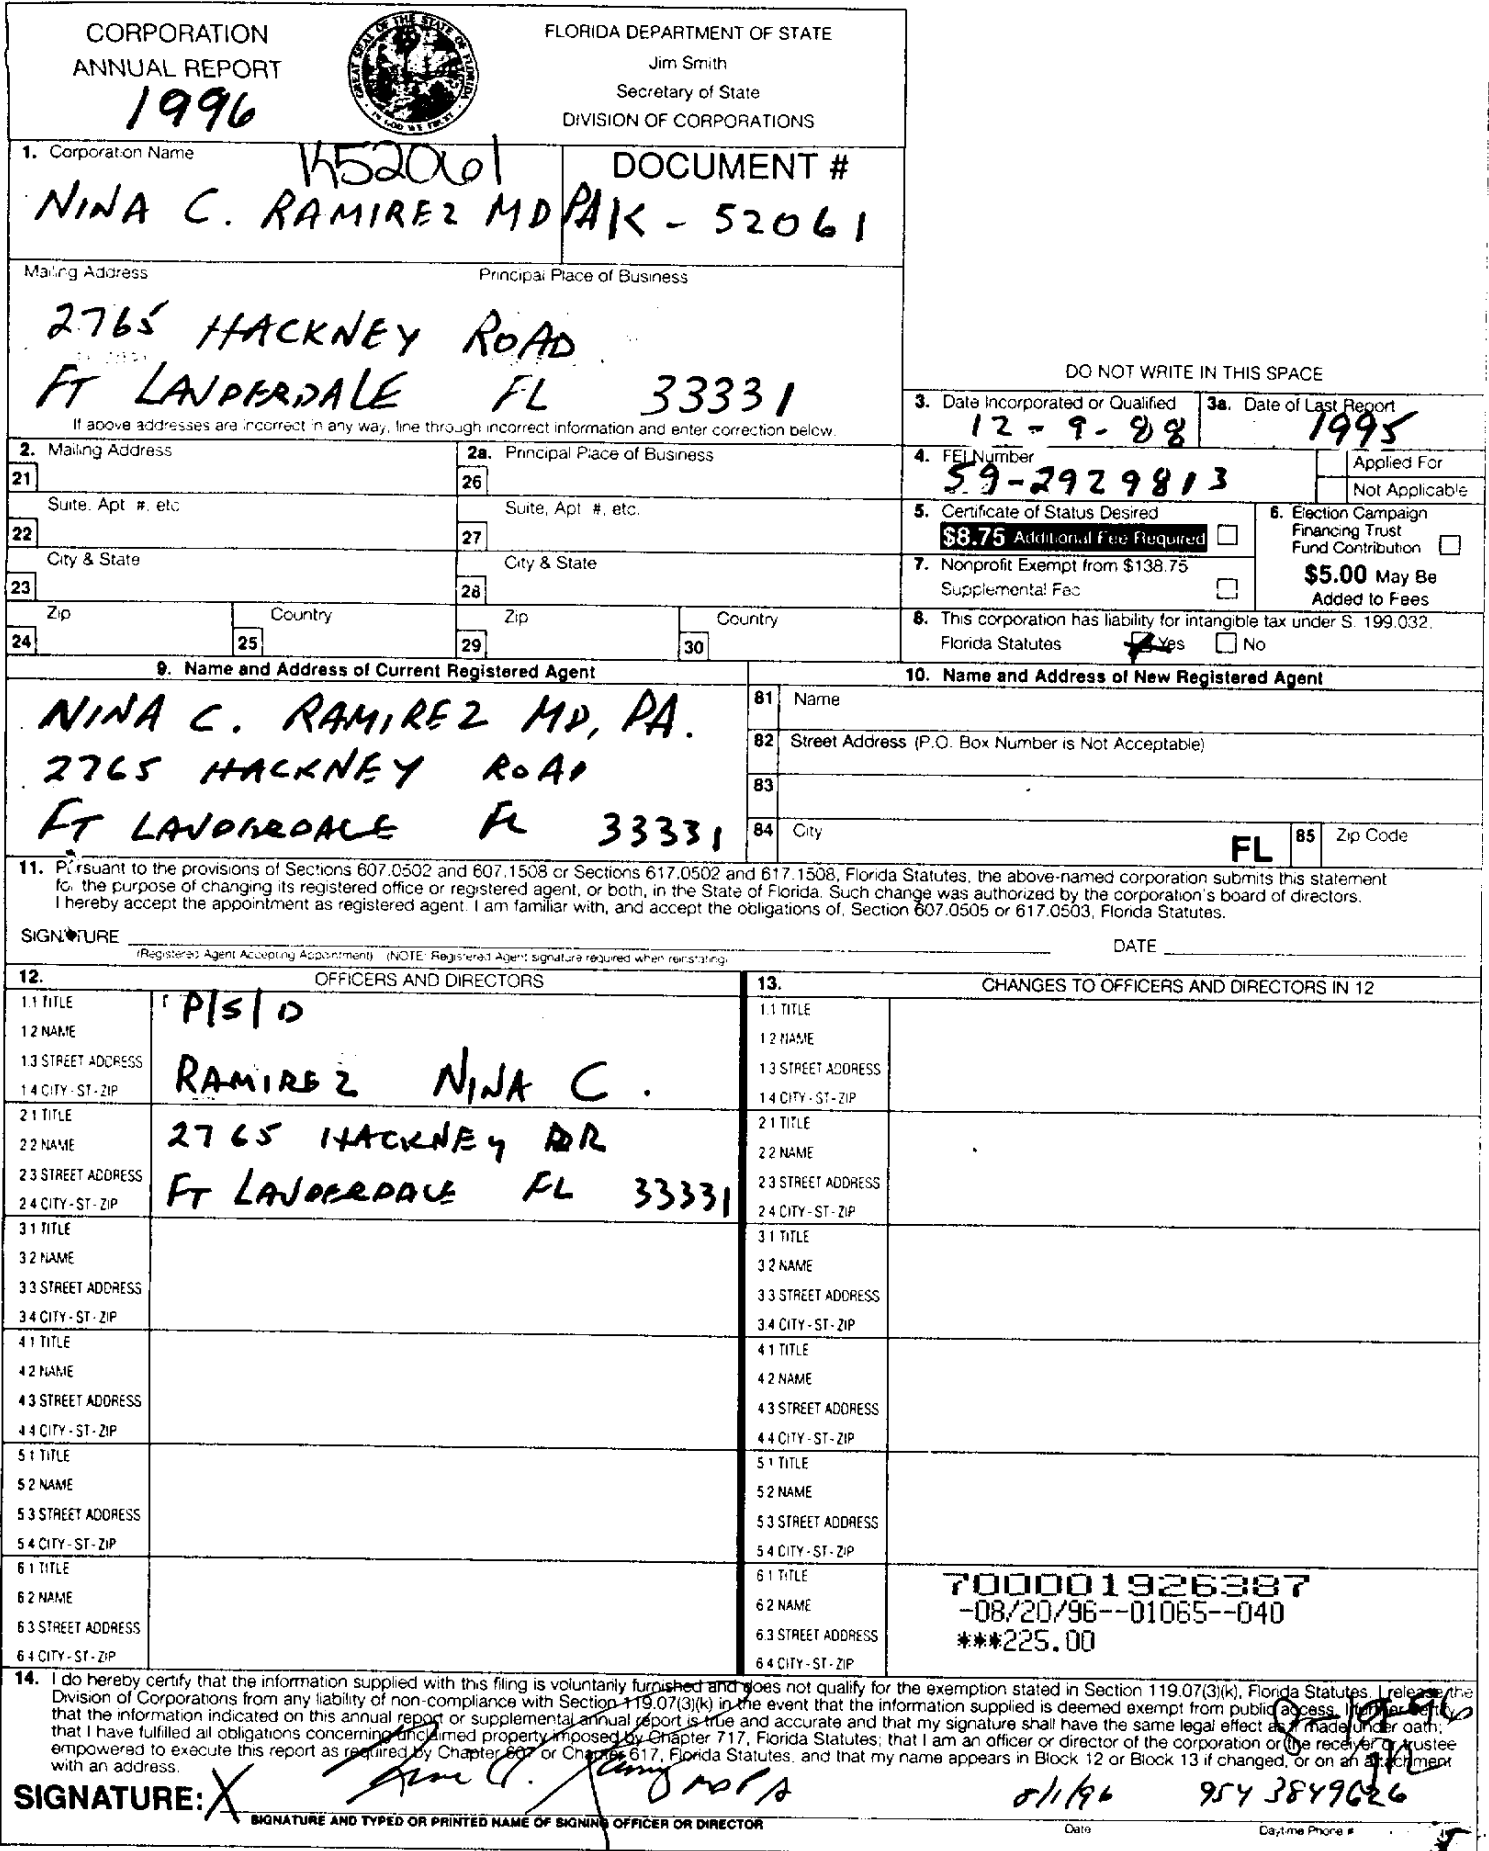 CORPORATION
ANNUAL REPORT
1996
GREAT SEAL OF THE STATE OF FLORIDA
IN GOD WE TRUST
FLORIDA DEPARTMENT OF STATE
Jim Smith
Secretary of State
DIVISION OF CORPORATIONS
1. Corporation Name
K52061
DOCUMENT #
NINA C. RAMIREZ MD PA K - 52061
Mailing Address Principal Place of Business
2765 HACKNEY ROAD
FT LAUDERDALE FL 33331
If above addresses are incorrect in any way, line through incorrect information and enter correction below.
DO NOT WRITE IN THIS SPACE
3. Date Incorporated or Qualified
12-9-88
3a. Date of Last Report
1995
2. Mailing Address
21
2a. Principal Place of Business
26
4. FEI Number
59-2929813
Applied For
Not Applicable
Suite. Apt #. etc
22
Suite, Apt #, etc.
27
5. Certificate of Status Desired
$8.75 Additional Fee Required
6. Election Campaign
Financing Trust
Fund Contribution
$5.00 May Be
Added to Fees
City & State
23
City & State
28
7. Nonprofit Exempt from $138.75
Supplemental Fee
Zip
24
Country
25
Zip
29
Country
30
8. This corporation has liability for intangible tax under S. 199.032.
Florida Statutes Yes No
9. Name and Address of Current Registered Agent
NINA C. RAMIREZ MD, PA.
2765 HACKNEY ROAD
FT LAUDERDALE FL 33331
10. Name and Address of New Registered Agent
81 Name
82 Street Address (P.O. Box Number is Not Acceptable)
83
84 City FL 85 Zip Code
11. Pursuant to the provisions of Sections 607.0502 and 607.1508 or Sections 617.0502 and 617.1508, Florida Statutes, the above-named corporation submits this statement
for the purpose of changing its registered office or registered agent, or both, in the State of Florida. Such change was authorized by the corporation's board of directors.
I hereby accept the appointment as registered agent. I am familiar with, and accept the obligations of, Section 607.0505 or 617.0503, Florida Statutes.
SIGNATURE DATE
(Registered Agent Accepting Appointment) (NOTE: Registered Agent signature required when reinstating)
12. OFFICERS AND DIRECTORS
1.1 TITLE P/S/D
1 2 NAME
1.3 STREET ADDRESS RAMIREZ NINA C.
1 4 CITY - ST - ZIP
2 1 TITLE 2765 HACKNEY DR
2 2 NAME
2 3 STREET ADDRESS FT LAUDERDALE FL 33331
2 4 CITY - ST - ZIP
3 1 TITLE
3 2 NAME
3 3 STREET ADDRESS
3 4 CITY - ST - ZIP
4 1 TITLE
4 2 NAME
4 3 STREET ADDRESS
4 4 CITY - ST - ZIP
5 1 TITLE
5 2 NAME
5 3 STREET ADDRESS
5 4 CITY - ST - ZIP
6 1 TITLE
6 2 NAME
6 3 STREET ADDRESS
6 4 CITY - ST - ZIP
13. CHANGES TO OFFICERS AND DIRECTORS IN 12
1.1 TITLE
1 2 NAME
1 3 STREET ADDRESS
1 4 CITY - ST - ZIP
2 1 TITLE
2 2 NAME
2 3 STREET ADDRESS
2 4 CITY - ST - ZIP
3 1 TITLE
3 2 NAME
3 3 STREET ADDRESS
3.4 CITY - ST - ZIP
4 1 TITLE
4 2 NAME
4 3 STREET ADDRESS
4 4 CITY - ST - ZIP
5 1 TITLE
5 2 NAME
5 3 STREET ADDRESS
5 4 CITY - ST - ZIP
6 1 TITLE
6 2 NAME
6.3 STREET ADDRESS
6 4 CITY - ST - ZIP
700001926387
-08/20/96--01065--040
***225.00
14. I do hereby certify that the information supplied with this filing is voluntarily furnished and does not qualify for the exemption stated in Section 119.07(3)(k), Florida Statutes. I release the
Division of Corporations from any liability of non-compliance with Section 119.07(3)(k) in the event that the information supplied is deemed exempt from public access. I further certify
that the information indicated on this annual report or supplemental annual report is true and accurate and that my signature shall have the same legal effect as if made under oath;
that I have fulfilled all obligations concerning unclaimed property imposed by Chapter 717, Florida Statutes; that I am an officer or director of the corporation or the receiver or trustee
empowered to execute this report as required by Chapter 607 or Chapter 617, Florida Statutes, and that my name appears in Block 12 or Block 13 if changed, or on an attachment
with an address.
SIGNATURE: X MD PA 8/1/96 954 3849626
SIGNATURE AND TYPED OR PRINTED NAME OF SIGNING OFFICER OR DIRECTOR Date Daytime Phone #